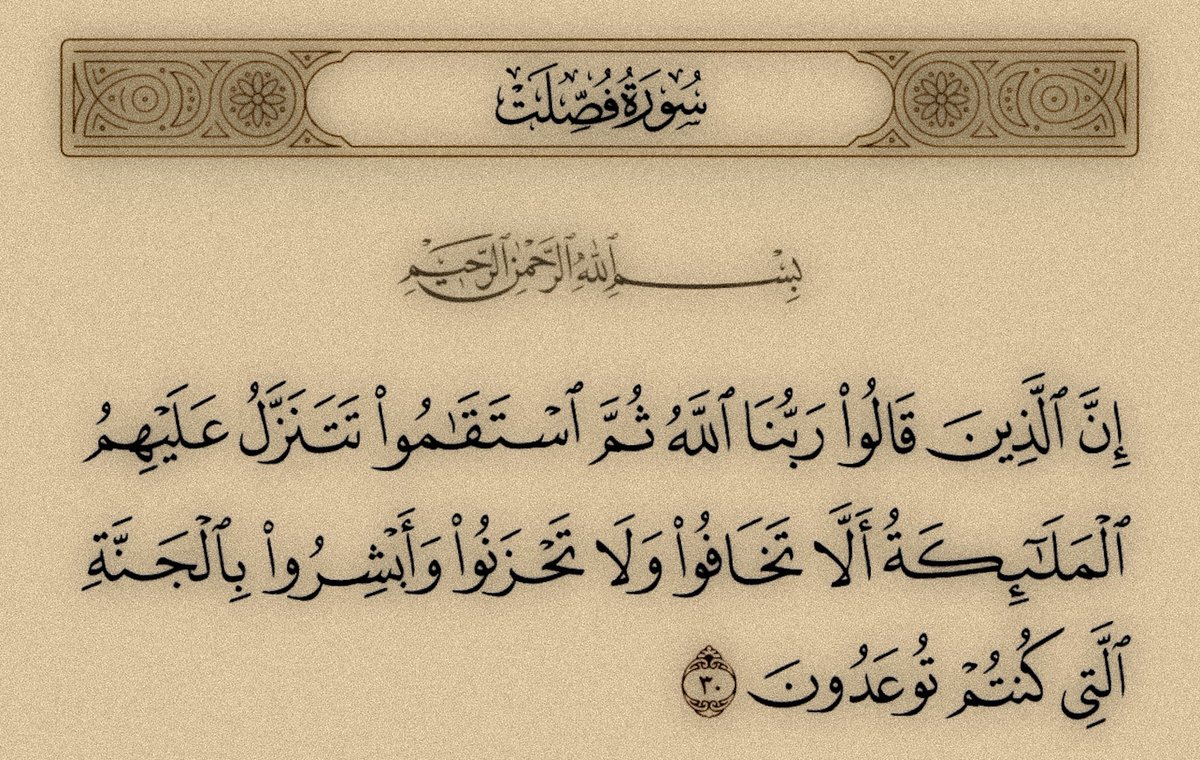 سُورَةُ فُصِّلَتْ
بِسْمِ ٱللَّهِ ٱلرَّحْمَٰنِ ٱلرَّحِيمِ
إِنَّ ٱلَّذِينَ قَالُوا۟ رَبُّنَا ٱللَّهُ ثُمَّ ٱسْتَقَـٰمُوا۟ تَتَنَزَّلُ عَلَيْهِمُ
ٱلْمَلَـٰٓئِكَةُ أَلَّا تَخَافُوا۟ وَلَا تَحْزَنُوا۟ وَأَبْشِرُوا۟ بِٱلْجَنَّةِ
ٱلَّتِى كُنتُمْ تُوعَدُونَ ٣٠